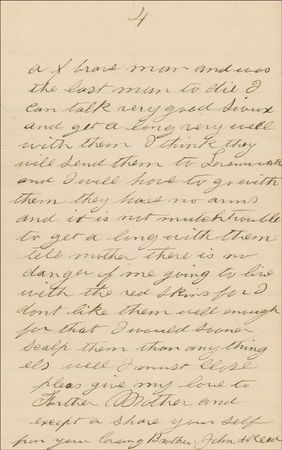 4
a x brave man and was
the last man to die I
can talk very good Sioux
and get a long very well
with them I think they
will send them to
and I will have to go with
them they have no arms
and it is not mutch trouble
to get a long with them
tell mother there is no
danger of me going to live
with the red skins for I
dont like them well enough
for that I would sooner
scalp them than any thing
els well I must close
pleas give my love to
Farther Mother and
except a share your self
from your loving Brother John